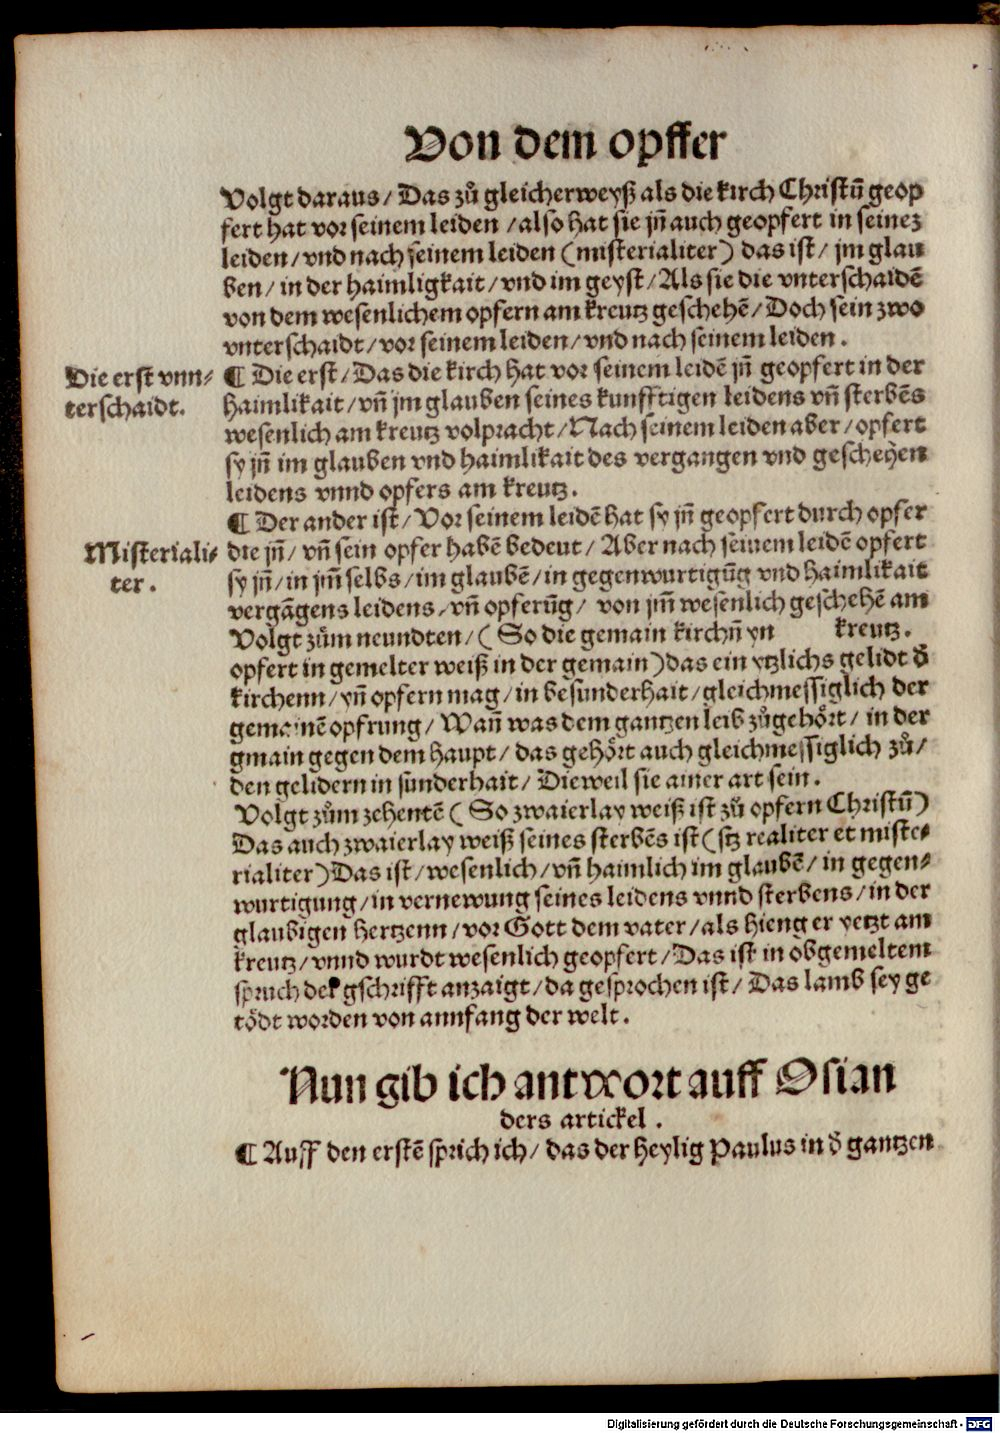 Von dem opffer
Volgt daraus / Das zů gleicherweyß als die kirch Christū geop
fert hat vor seinem leiden / also hat sie jn̄ auch geopfert in seinez
leiden / vnd nach seinem leiden (misterialiter) das ist / jm glau
ben / in der haimligkait / vnd im geyst / Als sie die vnterschaidē
von dem wesenlichem opfern am kreutz geschehē / Doch sein zwo
vnterschaidt / vor seinem leiden / vnd nach seinem leiden .
Die erst vnn⸗
terschaidt.
¶ Die erst / Das die kirch hat vor seinem leidē jn̄ geopfert in der
haimlikait / vn̄ jm glauben seines kunfftigen leidens vn̄ sterbēs
wesenlich am kreutz volpracht / Nach seinem leiden aber / opfert
sy jn̄ im glauben vnd haimlikait des vergangen vnd gescheyen
leidens vnnd opfers am kreutz .
Misteriali⸗
ter .
¶ Der ander ist / Vor seinem leidē hat sy jn̄ geopfert durch opfer
die jn̄ / vn̄ sein opfer habē bedeut / Aber nach seinem leidē opfert
sy jn̄ / in jm̄ selbs / im glaubē / in gegenwurtigūg vnd haimlikait
vergāgens leidens / vn̄ opferūg / von jm̄ wesenlich geschehē am
Volgt zům neundten / ( So die gemain kirchn̄ yn kreutz .
opfert in gemelter weiß in der gemain ) das ein ytzlichs gelidt d̄
kirchenn / yn̄ opfern mag / in besunderhait / gleichmessiglich der
gemainē opfrung / Wan̄ was dem gantzen leib zůgehört / in der
gmain gegen dem haupt / das gehört auch gleichmessiglich zů /
den gelidern in sunderhait / Dieweil sie ainer art sein .
Volgt zům zehentē ( So zwaierlay weiß ist zů opfern Christū )
Das auch zwaierlay weiß seines sterbēs ist ( stz realiter et miste⸗
rialiter ) Das ist / wesenlich / vn̄ haimlich im glaubē / in gegen⸗
wurtigung / in vernewung seines leidens vnnd sterbens / in der
glaubigen hertzenn / vor Gott dem vater / als hieng er yetzt am
kreutz / vnnd wurdt wesenlich geopfert / Das ist in obgemeltem
spruch der gschrifft anzaigt / da gesprochen ist / Das lamb sey ge
tödt worden von annfang der welt .
Nun gib ich antwort auff Osian
ders artickel .
¶ Auff den erstē sprich ich / das der heylig Paulus in d̄ gantzen
Digitalisierung gefördert durch die Deutsche Forschungsgemeinschaft - DFG